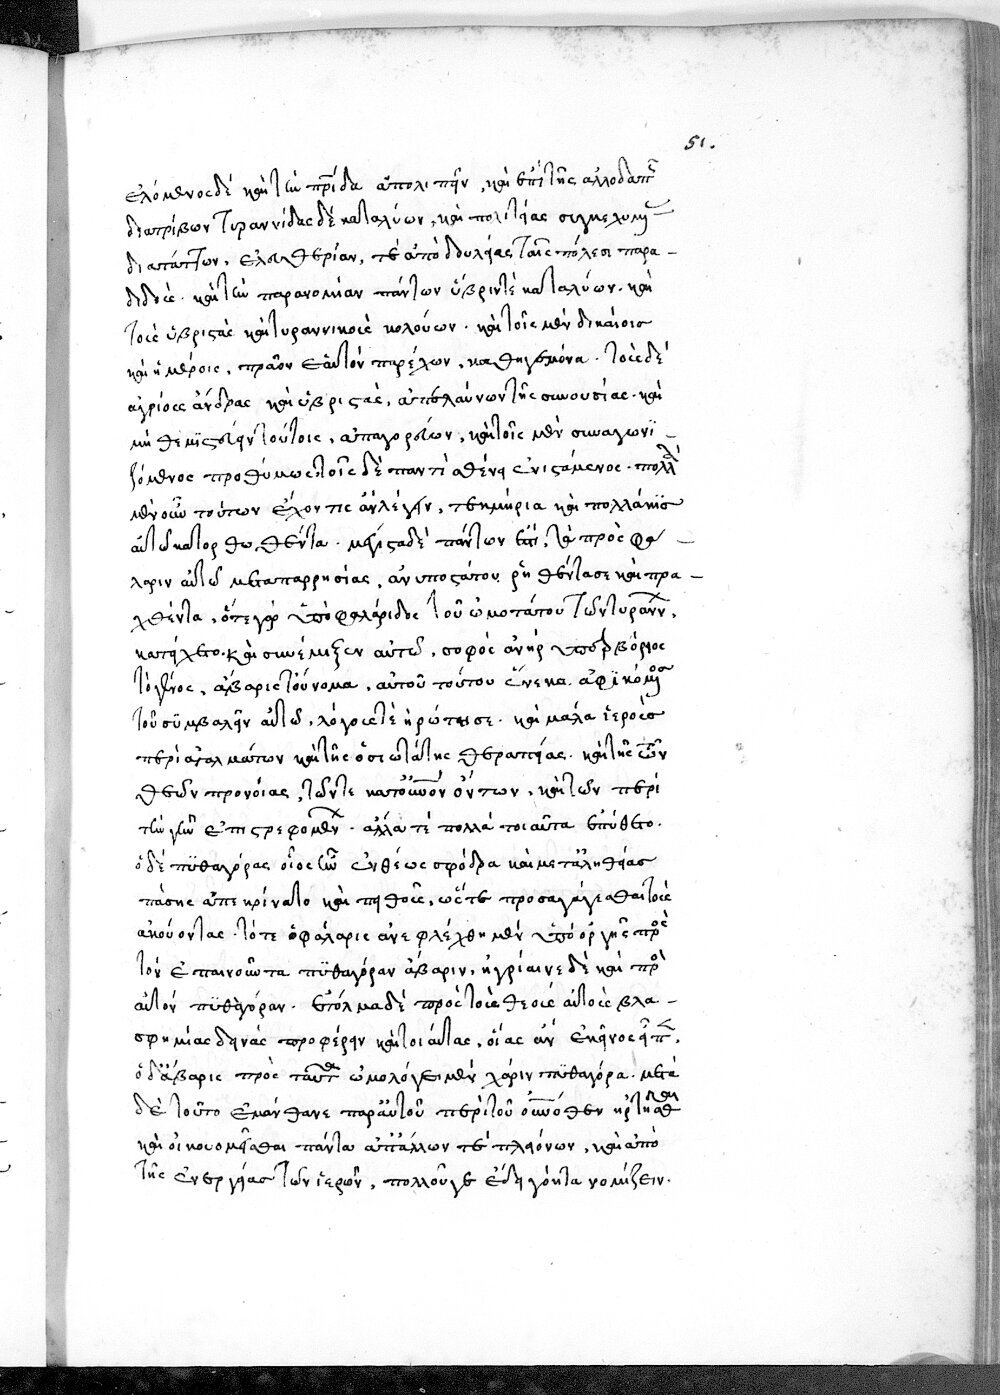 ἑλόμενος δὲ καὶ τὴν πρίδα ἀπολιπεῖν, καὶ ἐπὶ τῆς ἀλλοδαπῆς
διατρίβων τυραννίδας δὲ καταλύων, καὶ πολιτείας συγκεχυμένας
διατάττων, ἐλευθερίαν, τὲ ἀπὸ δουλείας ταῖς πόλεσι παρα-
διδούς. καὶ τὴν παρανομίαν παύων ὕβριν τὲ καταλύων. καὶ
τοὺς ὑβριστὰς καὶ τυραννικοὺς κολούων. καὶ τοῖς μὲν δικαίοις
καὶ ἡμέροις, πρᾶον ἑαυτὸν παρέχων, καθηγεμόνα. τοὺς δὲ
ἀγρίους ἄνδρας καὶ ὑβριστὰς, ἀπελαύνων τῆς συνουσίας. καὶ
μὴ θεμιστεύειν τούτοις, ἀπαγορεύων, καὶ τοῖς μὲν συναγωνϊ-
ζόμενος προθύμως, τοῖς δὲ παντὶ σθένει ἐνιστάμενος. πολλὰ
μὲν οὖν τούτων ἔχοι τις ἂν λέγειν, τεκμήρια καὶ πολλάκις
αὐτῷ κατορθωθέντα. μέγιστα δὲ πάντων ἐστὶ, τὰ πρὸς φά-
λαριν αὐτῷ μετὰ παρρησίας, ἀνυποστάτου ῥηθέντα τε καὶ πρα-
χθέντα, ὅτε γὰρ ὑπὸ φαλάριδος τοῦ ὠμοτάτου τῶν τυράννων,
κατείχετο. καὶ συνέμιξεν αὐτῷ, σοφὸς ἀνὴρ ὑπερβόρειος
τὸ γένος, ἄβαρις τοὔνομα, αὐτοῦ τούτου ἕνεκα ἀφϊκόμενος
τοῦ συμβαλεῖν αὐτῷ, λόγους τὲ ἠρώτησε. καὶ μάλα ἱεροὺς
περὶ ἀγαλμάτων καὶ τῆς ὁσιωτάτης θεραπείας. καὶ τῆς τῶν
θεῶν προνοίας, τῶν τε κατ' οὐνὸν ὄντων, καὶ τῶν περὶ
τὴν γῆν ἐπιστρεφομένων. ἄλλα τὲ πολλὰ τοιαῦτα ἐπύθετο.
ὁ δὲ πϋθαγόρας οἷος ἦν ἐνθέως σφόδρα καὶ μετ' ἀληθείας
πάσης ἀπεκρίνατο καὶ πειθοῦς, ὥστε προσαγαγέσθαι τοὺς
ἀκούοντας. τότε ὁ φάλαρις ἀνεφλέχθη μὲν ὑπὸ ὀργῆς πρὸς
τὸν ἐπαινοῦντα πϋθαγόραν ἄβαριν, ἠγρίαινε δὲ καὶ πρὸς
αὐτὸν πϋθαγόραν. ἐτόλμα δὲ πρὸς τοὺς θεοὺς αὐτοὺς βλα-
σφημίας δεινὰς προφέρειν καὶ τοιαύτας, οἵας ἂν ἐκεῖνος εἶπεν.
ὁ δ' ἄβαρις πρὸς ταῦτα ὡμολόγει μὲν χάριν πϋθαγόρα. μετὰ
δὲ τοῦτο ἐμάνθανε παρ' αὐτοῦ περὶ τοῦ οὐνόθεν ἠρτῆσθαι
καὶ οἰκονομεῖσθαι πάντα ἀπ' ἄλλων τὲ πλειόνων, καὶ ἀπὸ
τῆς ἐνεργείας τῶν ἱερῶν, πολλοῦ γε ἔδει γόητα νομίζειν.
51.